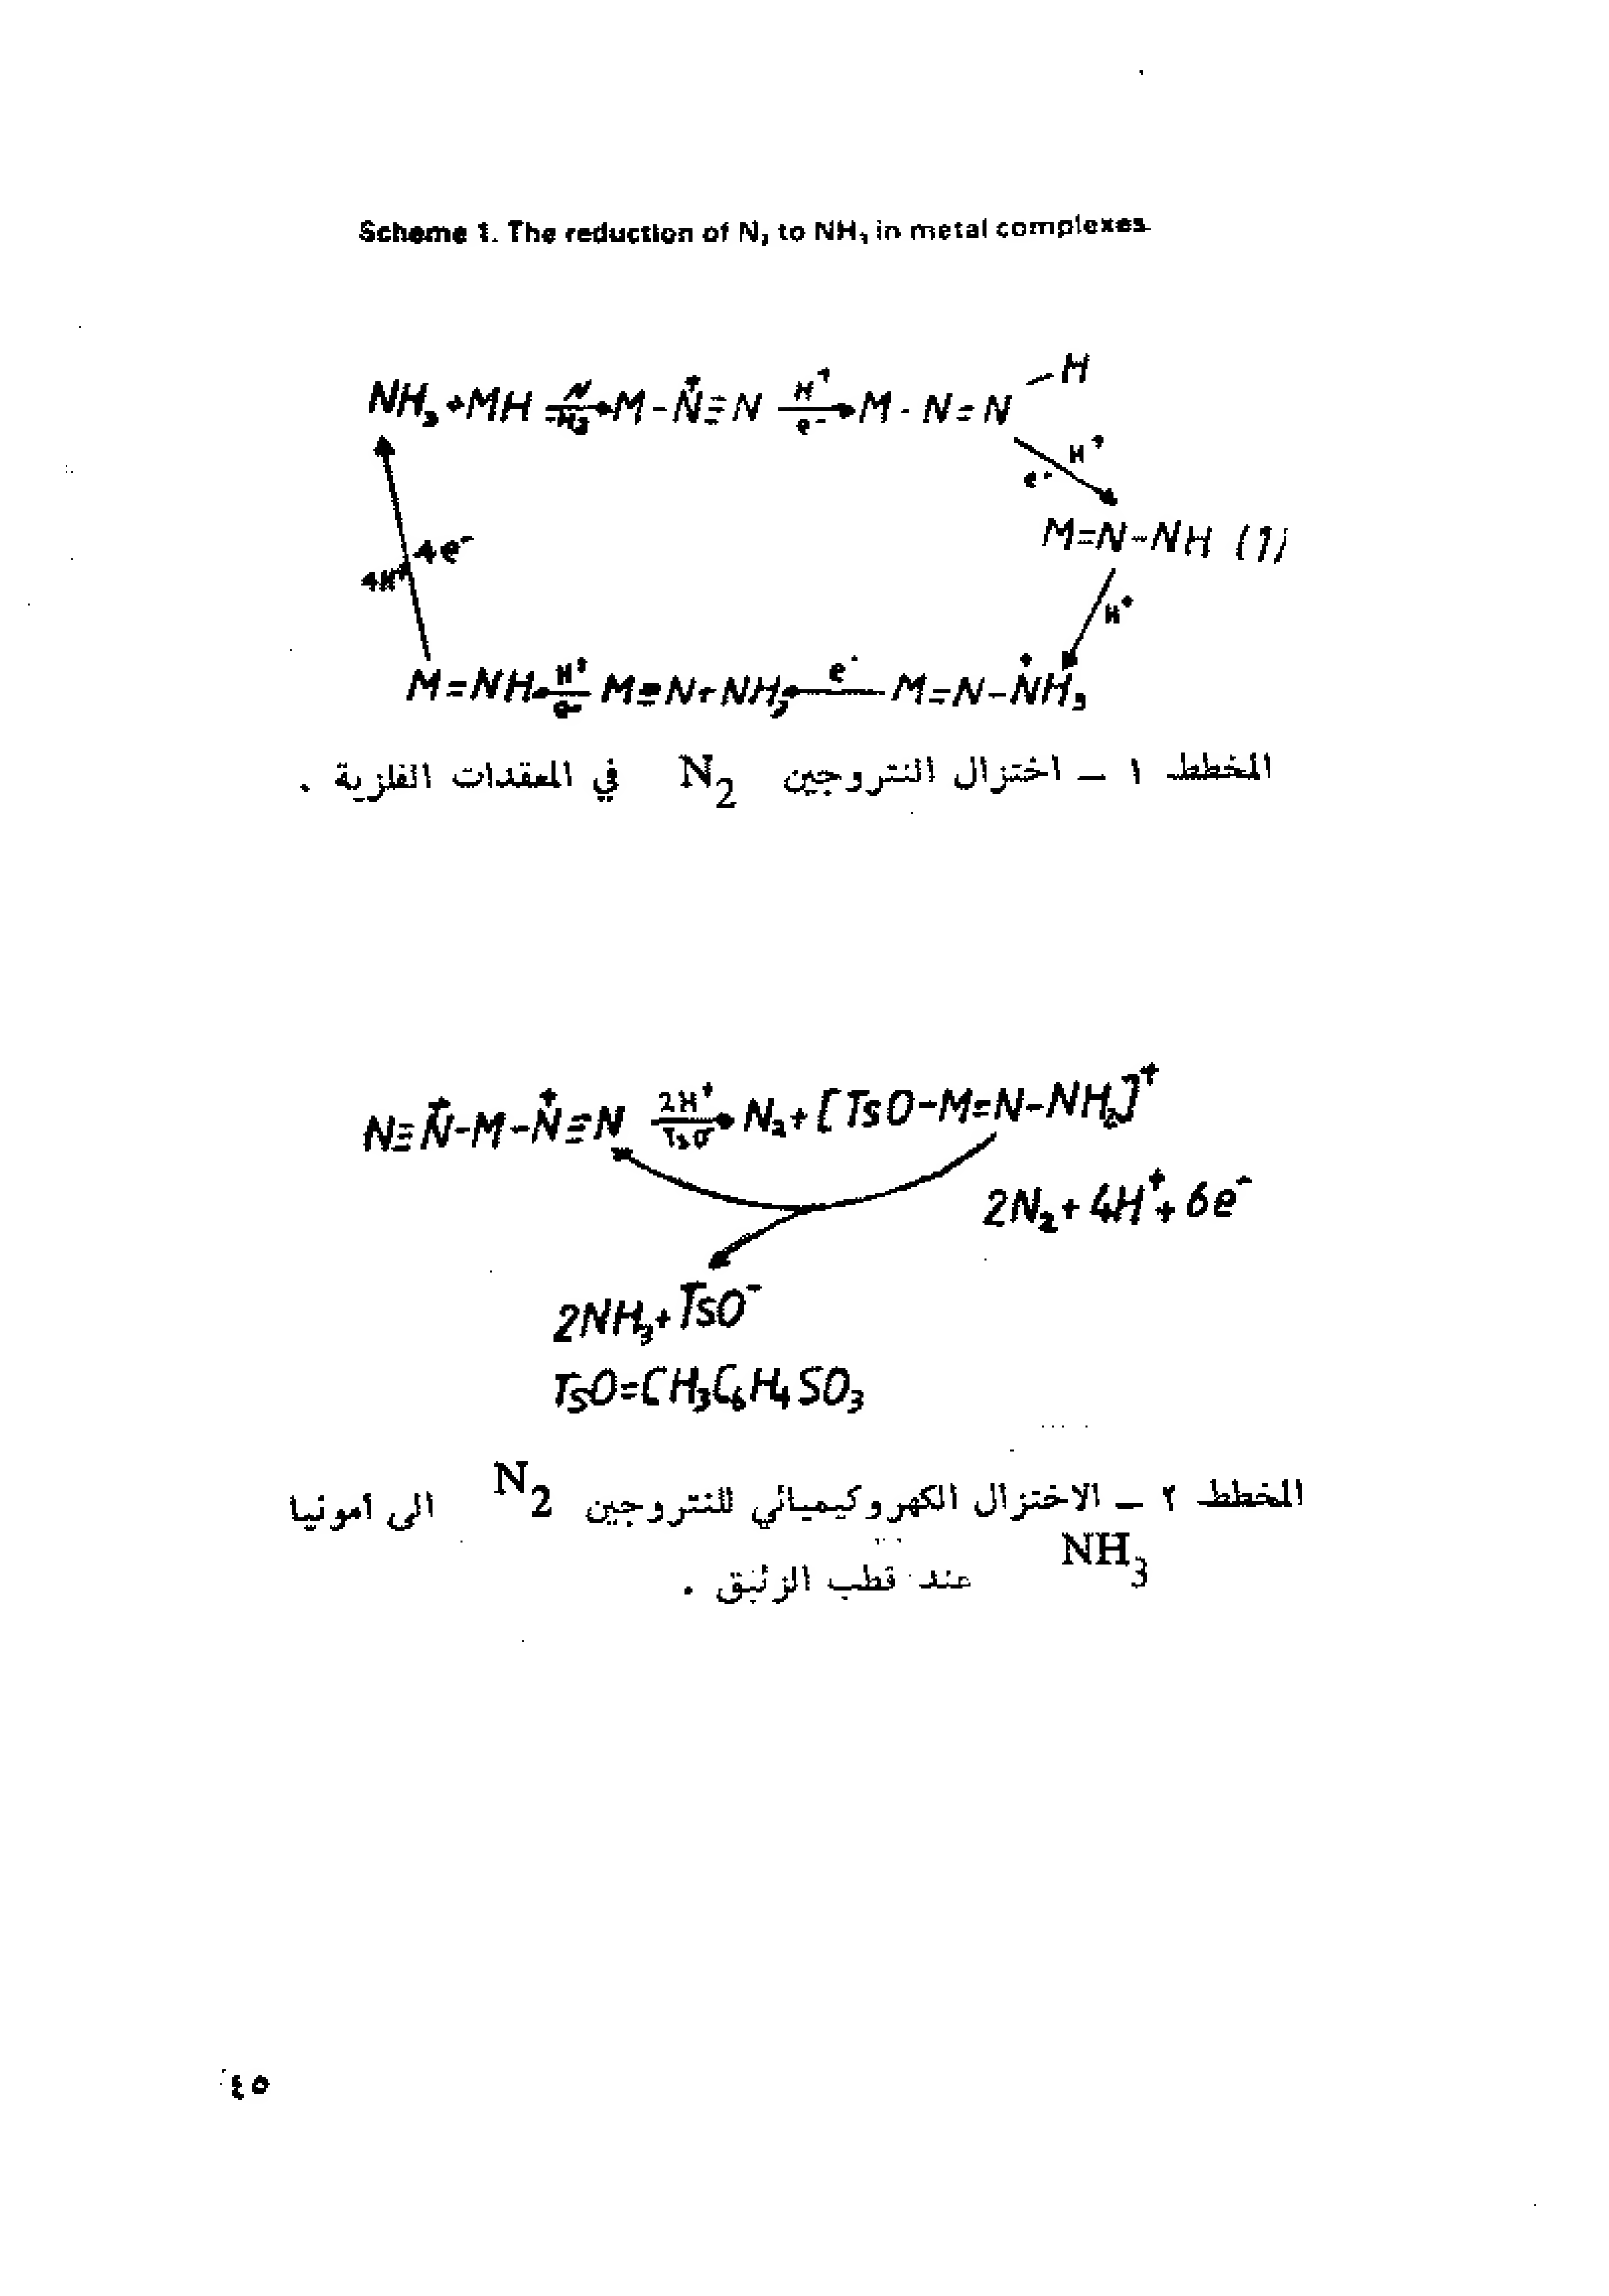 Scheme 1. The reduction of N₂ to NH₃ in metal complexes.
NH₃+MH M-N⁺≡N H⁺ e⁻ M-N=N-H
H⁺
e⁻
M=N-NH (1)
4e⁻
4H⁺
H⁺
M=NH H⁺ e⁻ M≡N+NH₃ e⁻ M=N-N⁺H₃
المخطط ١ – اختزال النتروجين N₂ في المعقدات الفلزية .
N≡N⁺-M-N⁺≡N 2H⁺ TsO⁻ N₂+[TsO-M=N-NH₂]⁺
2N₂+4H⁺+6e⁻
2NH₃+TsO⁻
TsO=CH₃C₆H₄SO₃
المخطط ٢ – الاختزال الكهروكيميائي للنتروجين N₂ الى امونيا
NH₃ عند قطب الزئبق .
٤٥